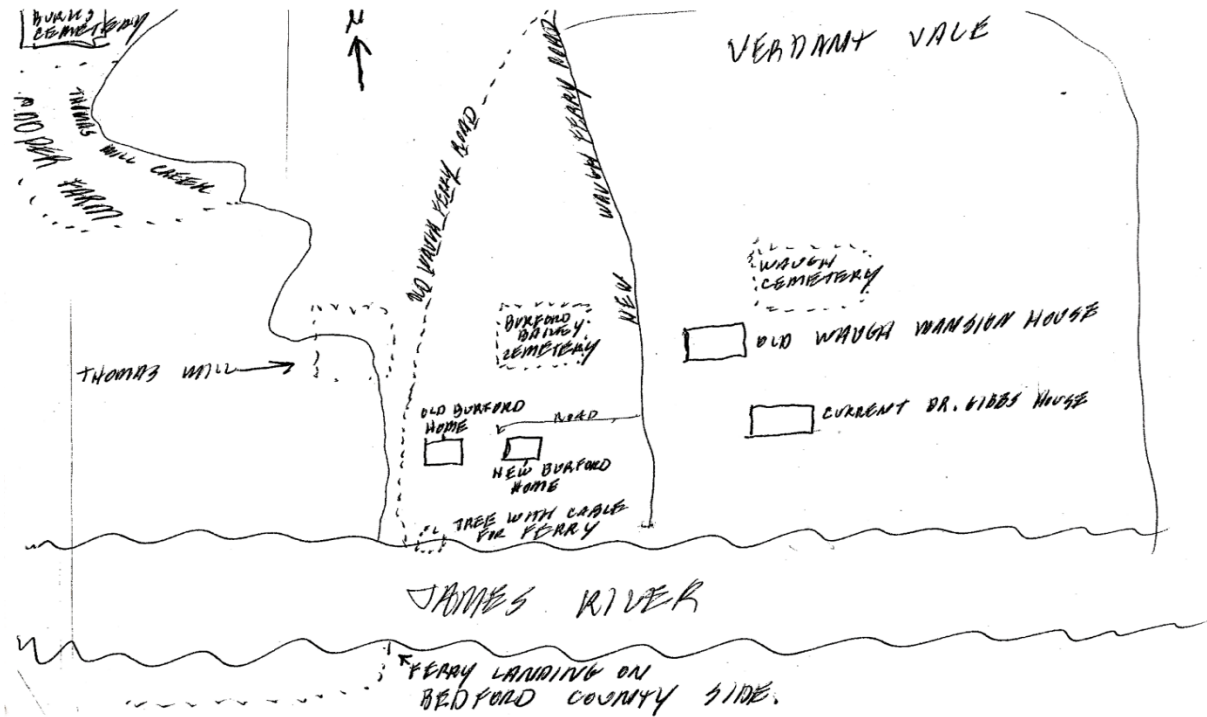 BURKS
CEMETERY
N
VERDANT VALE
THOMAS MILL CREEK
HOOPER FARM
OLD WAUGH FERRY ROAD
NEW WAUGH FERRY ROAD
WAUGH
CEMETERY
BURFORD
BAILEY
CEMETERY
OLD WAUGH MANSION HOUSE
THOMAS MILL
CURRENT DR. GIBBS HOUSE
OLD BURFORD
HOME
ROAD
NEW BURFORD
HOME
TREE WITH CABLE
FOR FERRY
JAMES RIVER
FERRY LANDING ON
BEDFORD COUNTY SIDE.